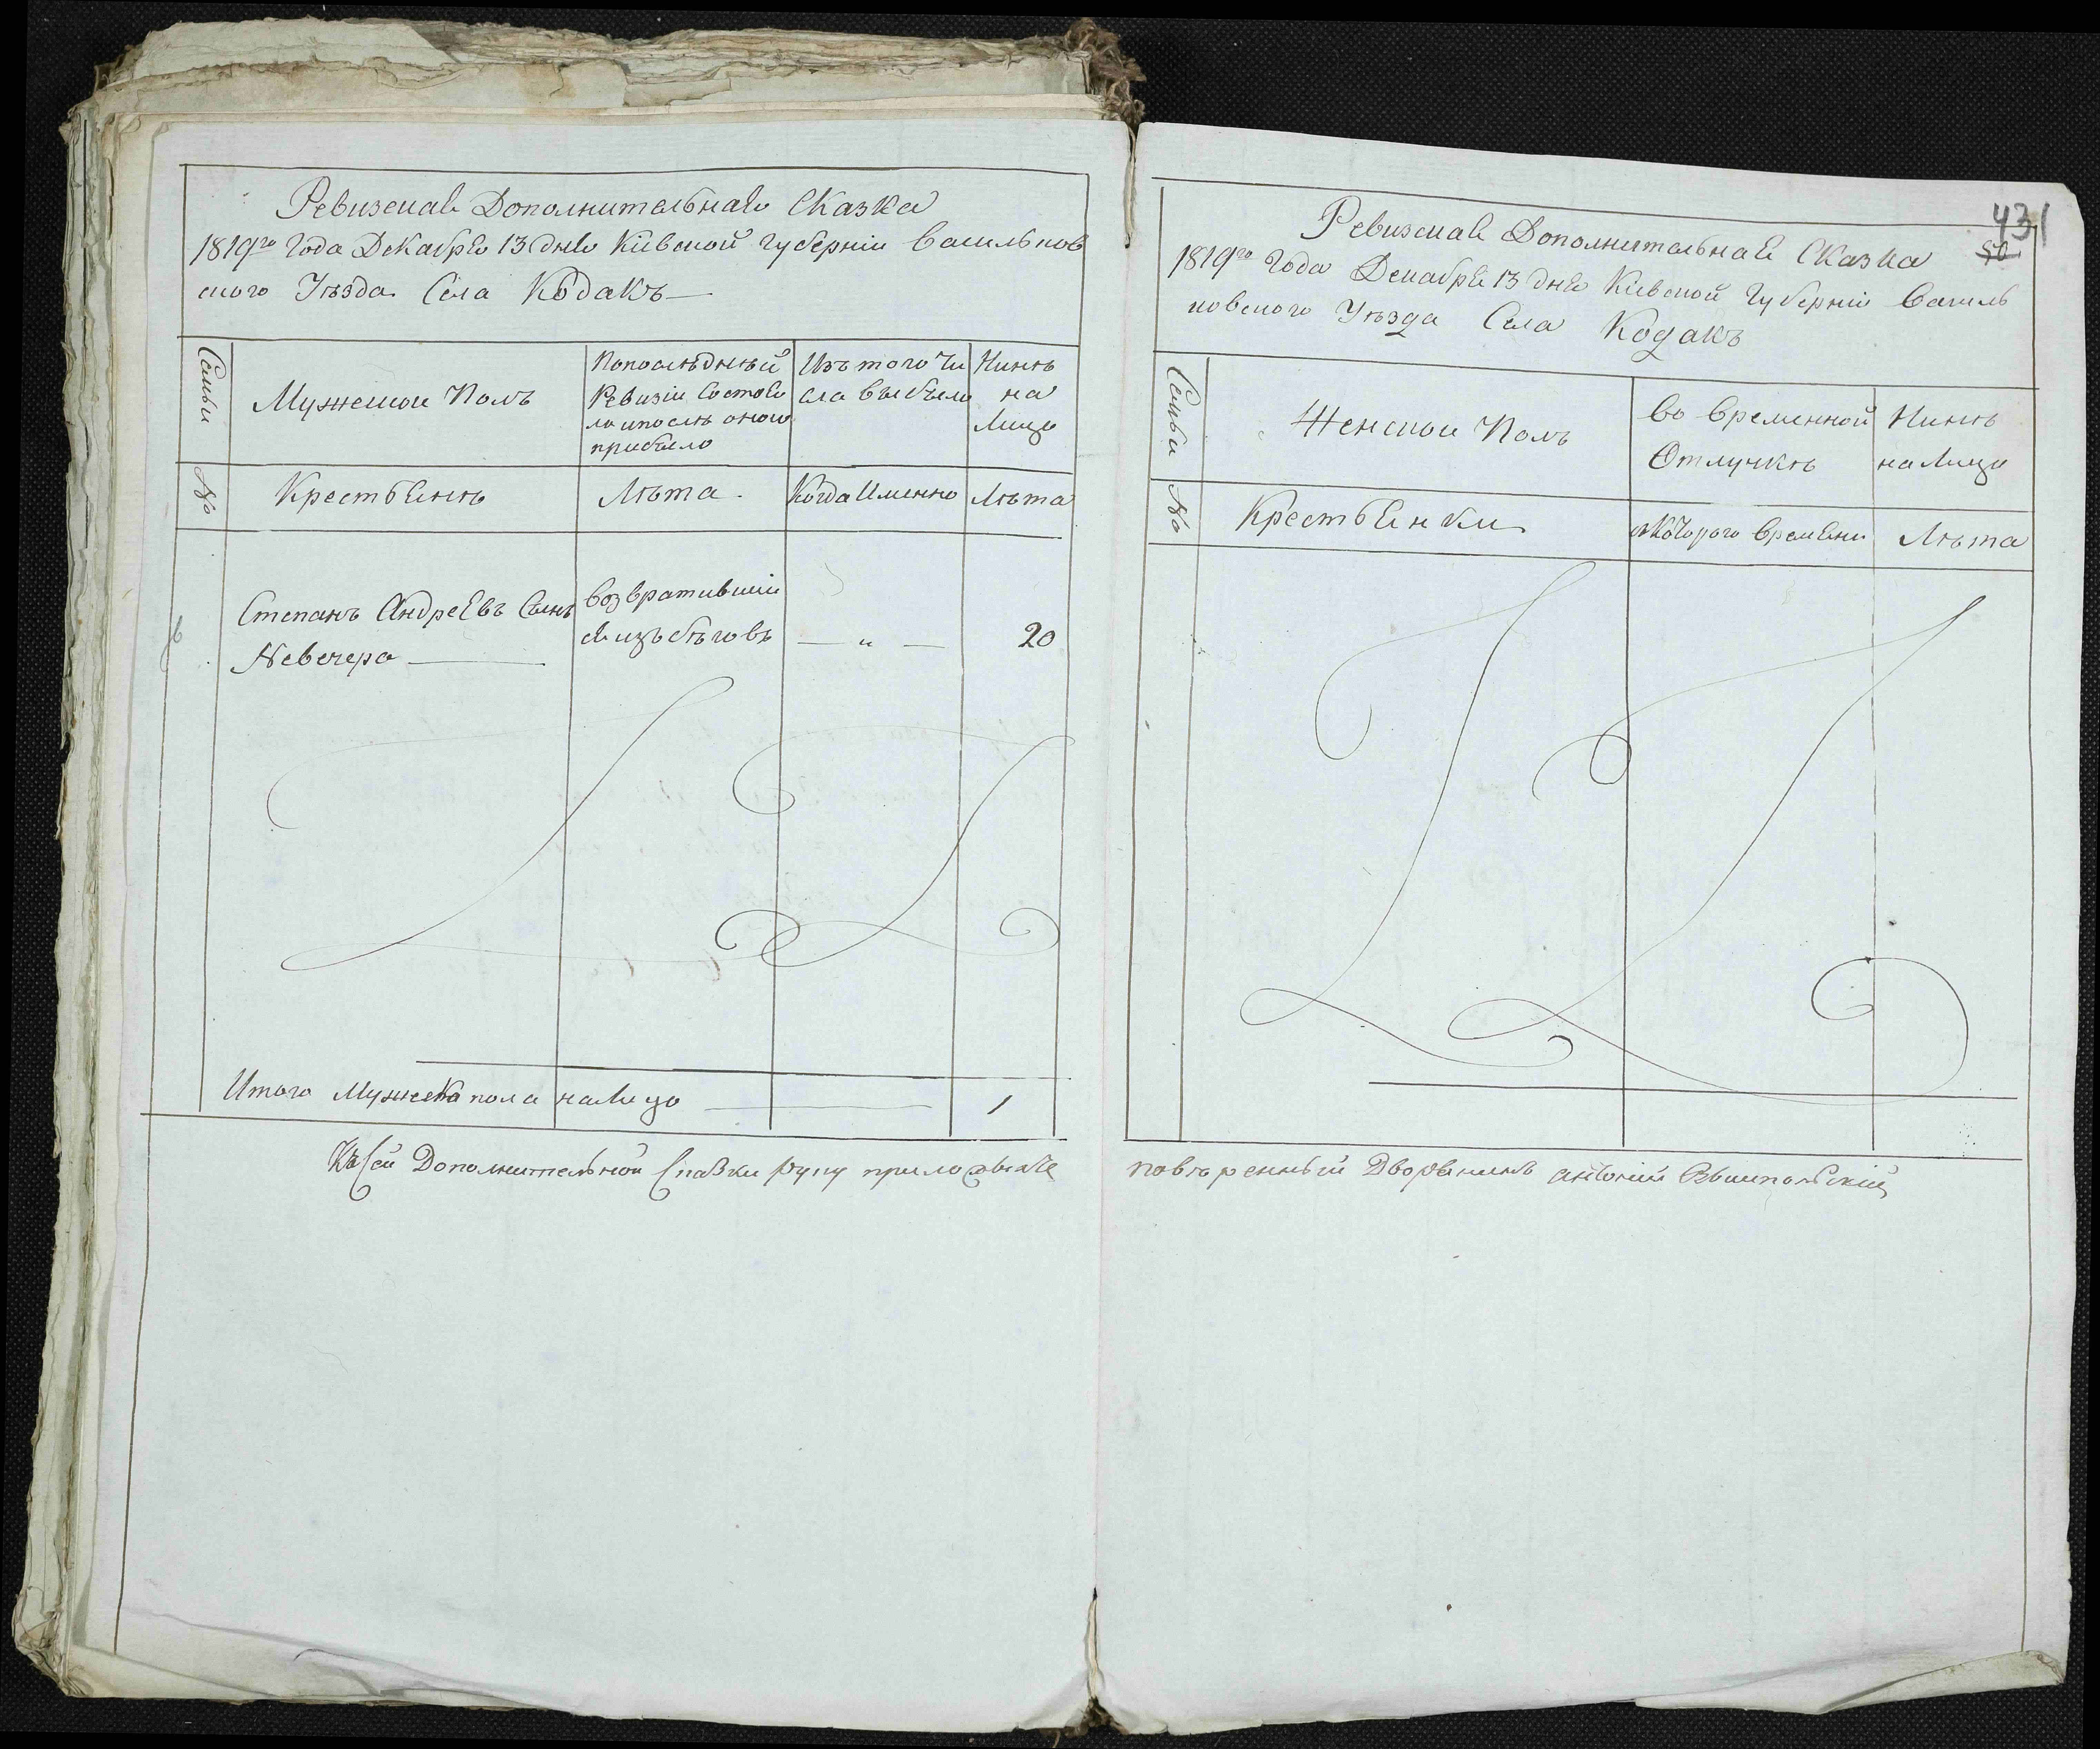 Ревизская Дополнительная Сказка
1819го Года Декабря 13 дня Кіевской Губерніи Васильков
ского Уѣзда Села Кодакъ
Семьи
Мужескои Полъ
Попослѣдней
Ревизіи Состоя
ло ипослѣ оного
прибыло
Изъ того Чи
сла выбыло
Нинѣ
на
Лицо
№
Крестьянѣ
Лѣта
Когда Именно
Лѣта
Степанъ Андреевъ Сынъ
Невечера
возвративший
ся изъ бѣговъ
20
Итого Мужеска пола на Лицо 1
Къ Сей Дополнительной Сказки руку приложилъ
431
Ревизская Дополнительная Сказка
1819го Года Декабря 13 дня Кіевской Губерніи Василь
ковского Уѣзда Села Кодакъ
Семьи
Женскои Полъ
Во Временной
Отлучкѣ
Нинѣ
на Лицо
№
Крестьянки
скоторого времени
Лѣта
повѣренный Дворянинъ Антоній Вышпольскій